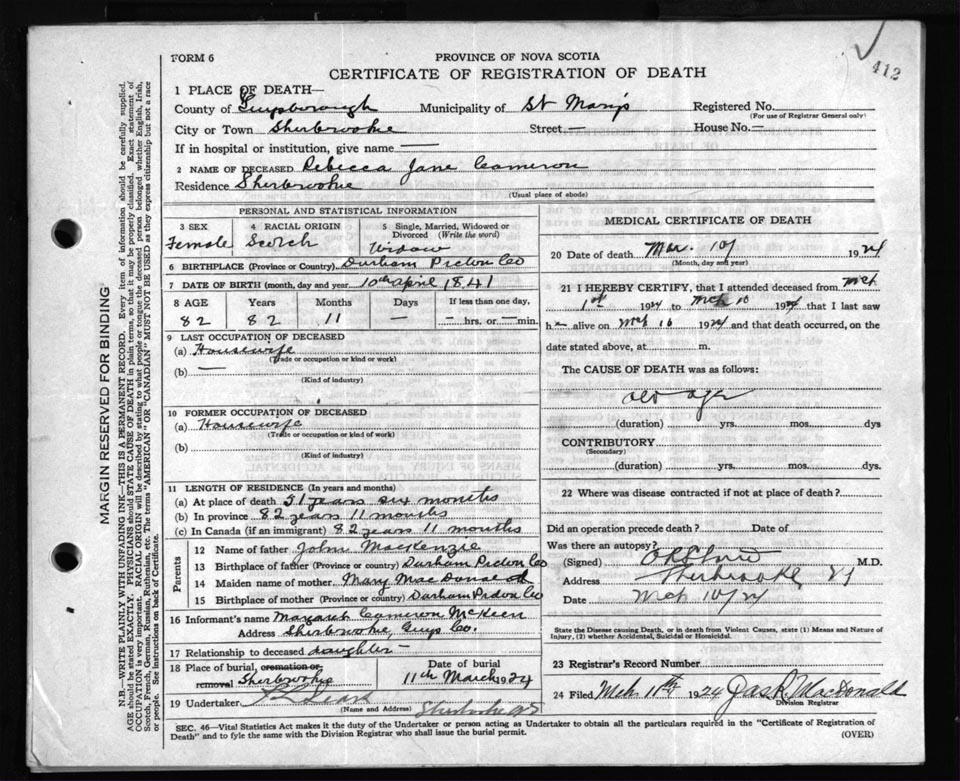 412
FORM 6
PROVINCE OF NOVA SCOTIA
CERTIFICATE OF REGISTRATION OF DEATH
1 PLACE OF DEATH—
County of Guysborough Municipality of St Mary's Registered No.
(For use of Registrar General only)
City or Town Sherbrooke Street — House No. —
If in hospital or institution, give name —
2 NAME OF DECEASED Rebecca Jane Cameron
Residence Sherbrooke
(Usual place of abode)
PERSONAL AND STATISTICAL INFORMATION
3 SEX 4 RACIAL ORIGIN 5 Single, Married, Widowed or
Divorced (Write the word)
Female Scotch Widow
6 BIRTHPLACE (Province or Country) Durham Pictou Co
7 DATE OF BIRTH (month, day and year) 10th April 1841
8 AGE Years Months Days If less than one day,
82 82 11 — — hrs. or — min.
9 LAST OCCUPATION OF DECEASED
(a) Housewife
(Trade or occupation or kind or work)
(b) —
(Kind of industry)
10 FORMER OCCUPATION OF DECEASED
(a) Housewife
(Trade or occupation or kind of work)
(b)
(Kind of industry)
11 LENGTH OF RESIDENCE (In years and months)
(a) At place of death 51 years six months
(b) In province 82 years 11 months
(c) In Canada (if an immigrant) 82 years 11 months
Parents
12 Name of father John MacKenzie
13 Birthplace of father (Province or Country) Durham Pictou Co
14 Maiden name of mother Mary MacDonald
15 Birthplace of mother (Province or Country) Durham Pictou Co
16 Informant's name Margaret Cameron McKeen
Address Sherbrooke, Guys Co.
17 Relationship to deceased daughter —
18 Place of burial, cremation or Date of burial
removal Sherbrooke 11th March 1924
19 Undertaker
(Name and Address) Sherbrooke NS
MEDICAL CERTIFICATE OF DEATH
20 Date of death Mar. 10 1924
(Month, day and year)
21 I HEREBY CERTIFY, that I attended deceased from Mch
1st 1924 to Mch 10 1924 that I last saw
h alive on Mch 10 1924 and that death occurred, on the
date stated above, at m.
The CAUSE OF DEATH was as follows:
old age
(duration) yrs. mos. dys
CONTRIBUTORY
(Secondary)
(duration) yrs. mos. dys.
22 Where was disease contracted if not at place of death?
Did an operation precede death? Date of
Was there an autopsy?
(Signed) M.D.
Address Sherbrooke
Date Mch 10/24
State the Disease causing Death, or in death from Violent Causes, state (1) Means and Nature of
Injury, (2) whether Accidental, Suicidal or Homicidal.
23 Registrar's Record Number
24 Filed Mch. 11th 1924 Jas. R. MacDonald
Division Registrar
SEC. 46—Vital Statistics Act makes it the duty of the Undertaker or person acting as Undertaker to obtain all the particulars required in the "Certificate of Registration of
Death" and to fyle the same with the Division Registrar who shall issue the burial permit.
(OVER)
MARGIN RESERVED FOR BINDING
N.B.—WRITE PLAINLY WITH UNFADING INK—THIS IS A PERMANENT RECORD. Every item of information should be carefully supplied.
AGE should be stated EXACTLY. PHYSICIANS should STATE CAUSE OF DEATH in plain terms, so that it may be properly classified. Exact statement of
OCCUPATION is very important. RACIAL ORIGIN will be described by stating to what people or tongue the deceased person belonged whether English, Irish,
Scotch, French, German, Russian, Ruthenian, etc. The terms "AMERICAN" or "CANADIAN" MUST NOT BE USED as they express citizenship but not a race
or people. See instructions on back of Certificate.